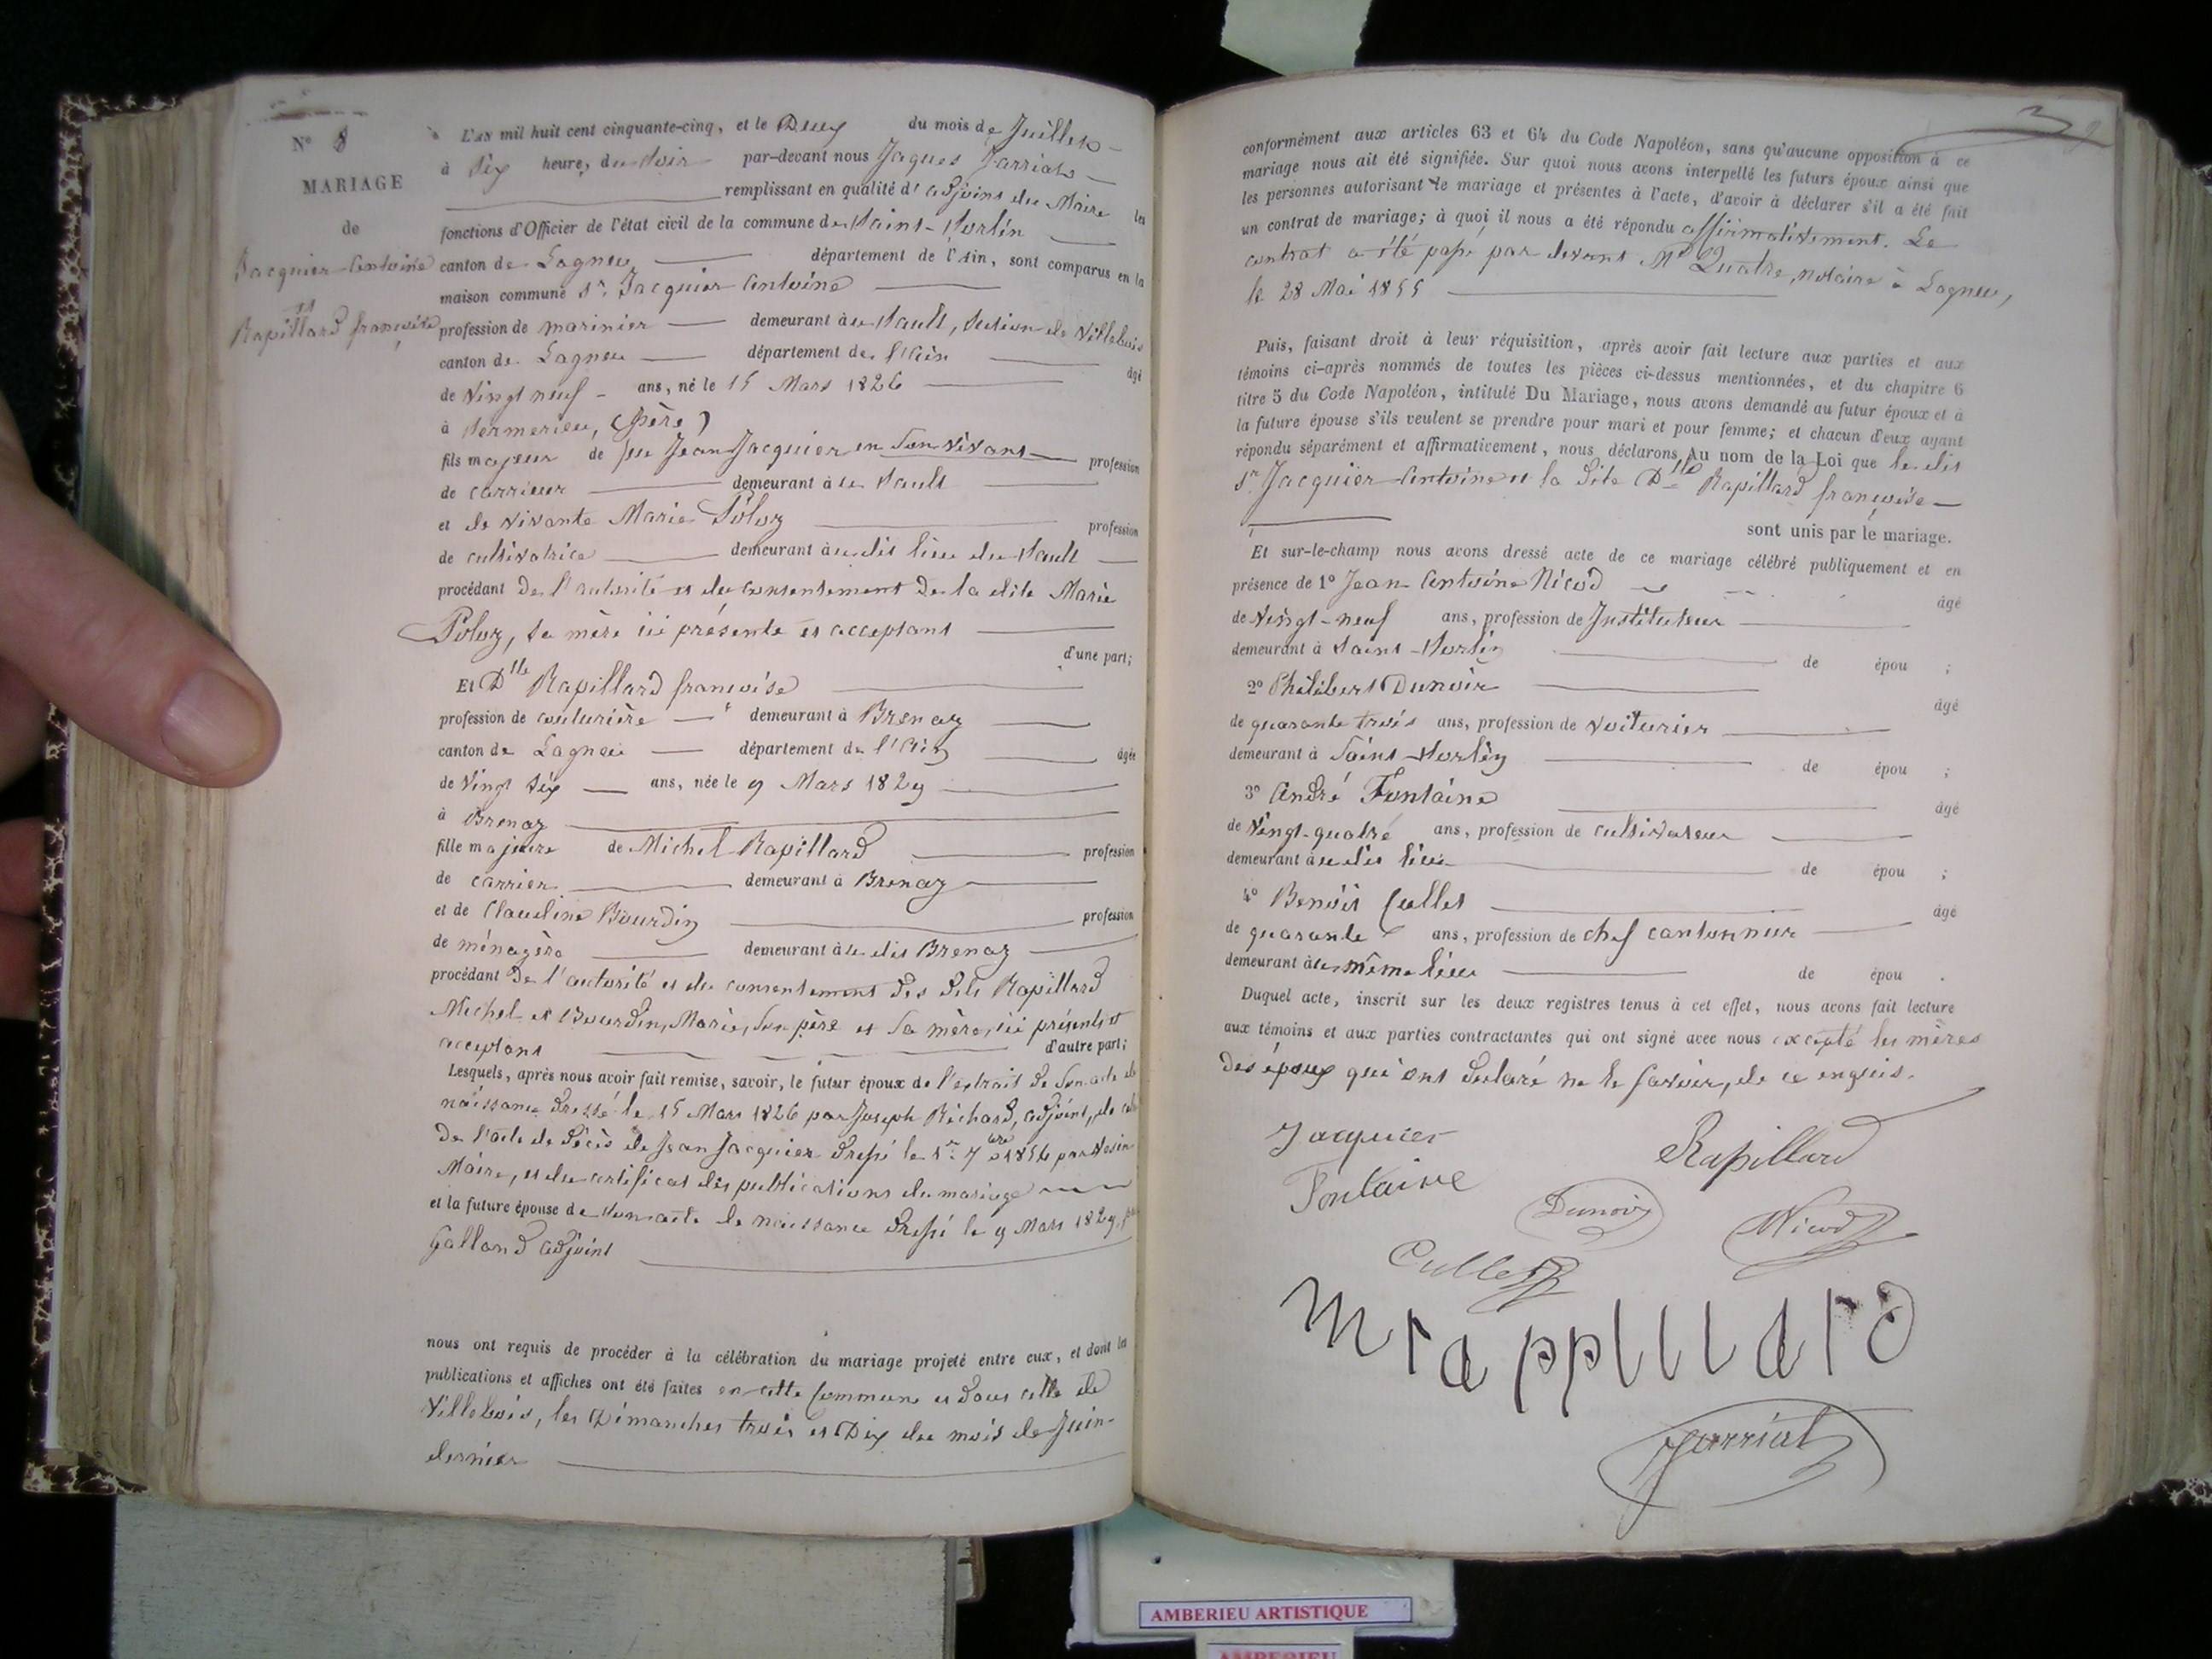 N° 8
MARIAGE
de
Jacquier Antoine
et
Rapillard françoise
L'AN mil huit cent cinquante-cinq, et le Deux du mois de Juillet
à Six heure, du Soir par-devant nous Jaques Jarriat
remplissant en qualité d'adjoint du Maire les
fonctions d'Officier de l'état civil de la commune de Saint-Sorlin
canton de Lagneu département de l'Ain, sont comparus en la
maison commune Sr. Jacquier Antoine
profession de marinier demeurant à le Sault, Section de Villebois
canton de Lagneu département de l'Ain âgé
de Vingt neuf ans, né le 15 Mars 1826
à Sermerieu, (Isère)
fils majeur de feu Jean Jacquier en Son vivant profession
de carrieur demeurant à le Sault
et de vivante Marie Poloz profession
de cultivatrice demeurant à udit lieu du Sault
procédant De l'autorité et du consentement De la dite Marie
Poloz, Sa mère ici présente et acceptant
d'une part;
Et Dlle Rapillard françoise
profession de couturière demeurant à Brenaz
canton de Lagneu département de l'Ain âgée
de Vingt Six ans, née le 9 Mars 1829
à Brenaz
fille majeure de Michel Rapillard profession
de carrier demeurant à Brenaz
et de Claudine Bourdin profession
de ménagère demeurant à udit Brenaz
procédant De l'autorité et du consentement Des Dits Rapillard
Michel et Bourdin, Marie, Son père et Sa mère, ici présents et
acceptant d'autre part;
Lesquels, après nous avoir fait remise, savoir, le futur époux de l'extrait de Son acte de
naissance Dressé le 15 Mars 1826 par Joseph Richard, adjoint, de celui
De l'acte de Décès de Jean Jacquier Dressé le 7bre par
Maire, et du certificat des publications du mariage
et la future épouse de Son acte de naissance Dressé le 9 Mars 1829, par
Galland adjoint
nous ont requis de procéder à la célébration du mariage projeté entre eux, et dont les
publications et affiches ont été faites en cette Commune et Dans celle de
Villebois, les Dimanches trois et Dix du mois de Juin
dernier
conformément aux articles 63 et 64 du Code Napoléon, sans qu'aucune opposition à ce
mariage nous ait été signifiée. Sur quoi nous avons interpellé les futurs époux ainsi que
les personnes autorisant le mariage et présentes à l'acte, d'avoir à déclarer s'il a été fait
un contrat de mariage; à quoi il nous a été répondu affirmativement. Le
contrat a été passé par devant Me Quatre, notaire à Lagneu,
le 28 Mai 1855
Puis, faisant droit à leur réquisition, après avoir fait lecture aux parties et aux
témoins ci-après nommés de toutes les pièces ci-dessus mentionnées, et du chapitre 6
titre 5 du Code Napoléon, intitulé Du Mariage, nous avons demandé au futur époux et à
la future épouse s'ils veulent se prendre pour mari et pour femme; et chacun d'eux ayant
répondu séparément et affirmativement, nous déclarons Au nom de la Loi que le dit
Sr Jacquier Antoine et la Dite Dlle Rapillard françoise
sont unis par le mariage.
Et sur-le-champ nous avons dressé acte de ce mariage célébré publiquement et en
présence de 1° Jean Antoine Nicod âgé
de Vingt-neuf ans, profession de Instituteur
demeurant à Saint-Sorlin de épou ;
2° Philibert Dunoir âgé
de quarante trois ans, profession de voiturier
demeurant à Saint-Sorlin de épou ;
3° André Fontaine âgé
de Vingt-quatre ans, profession de cultivateur
demeurant à udit lieu de épou ;
4° Benoit Cullet âgé
de quarante ans, profession de chef cantonnier
demeurant à u même lieu de épou .
Duquel acte, inscrit sur les deux registres tenus à cet effet, nous avons fait lecture
aux témoins et aux parties contractantes qui ont signé avec nous excepté les mères
Des époux qui ont Déclaré ne le Savoir, de ce enquis.
Jacquier
Rapillard
Fontaine
Dunoir
Nicod
Cullet
M rappillard
Jarriat
AMBERIEU ARTISTIQUE
AMBERIEU